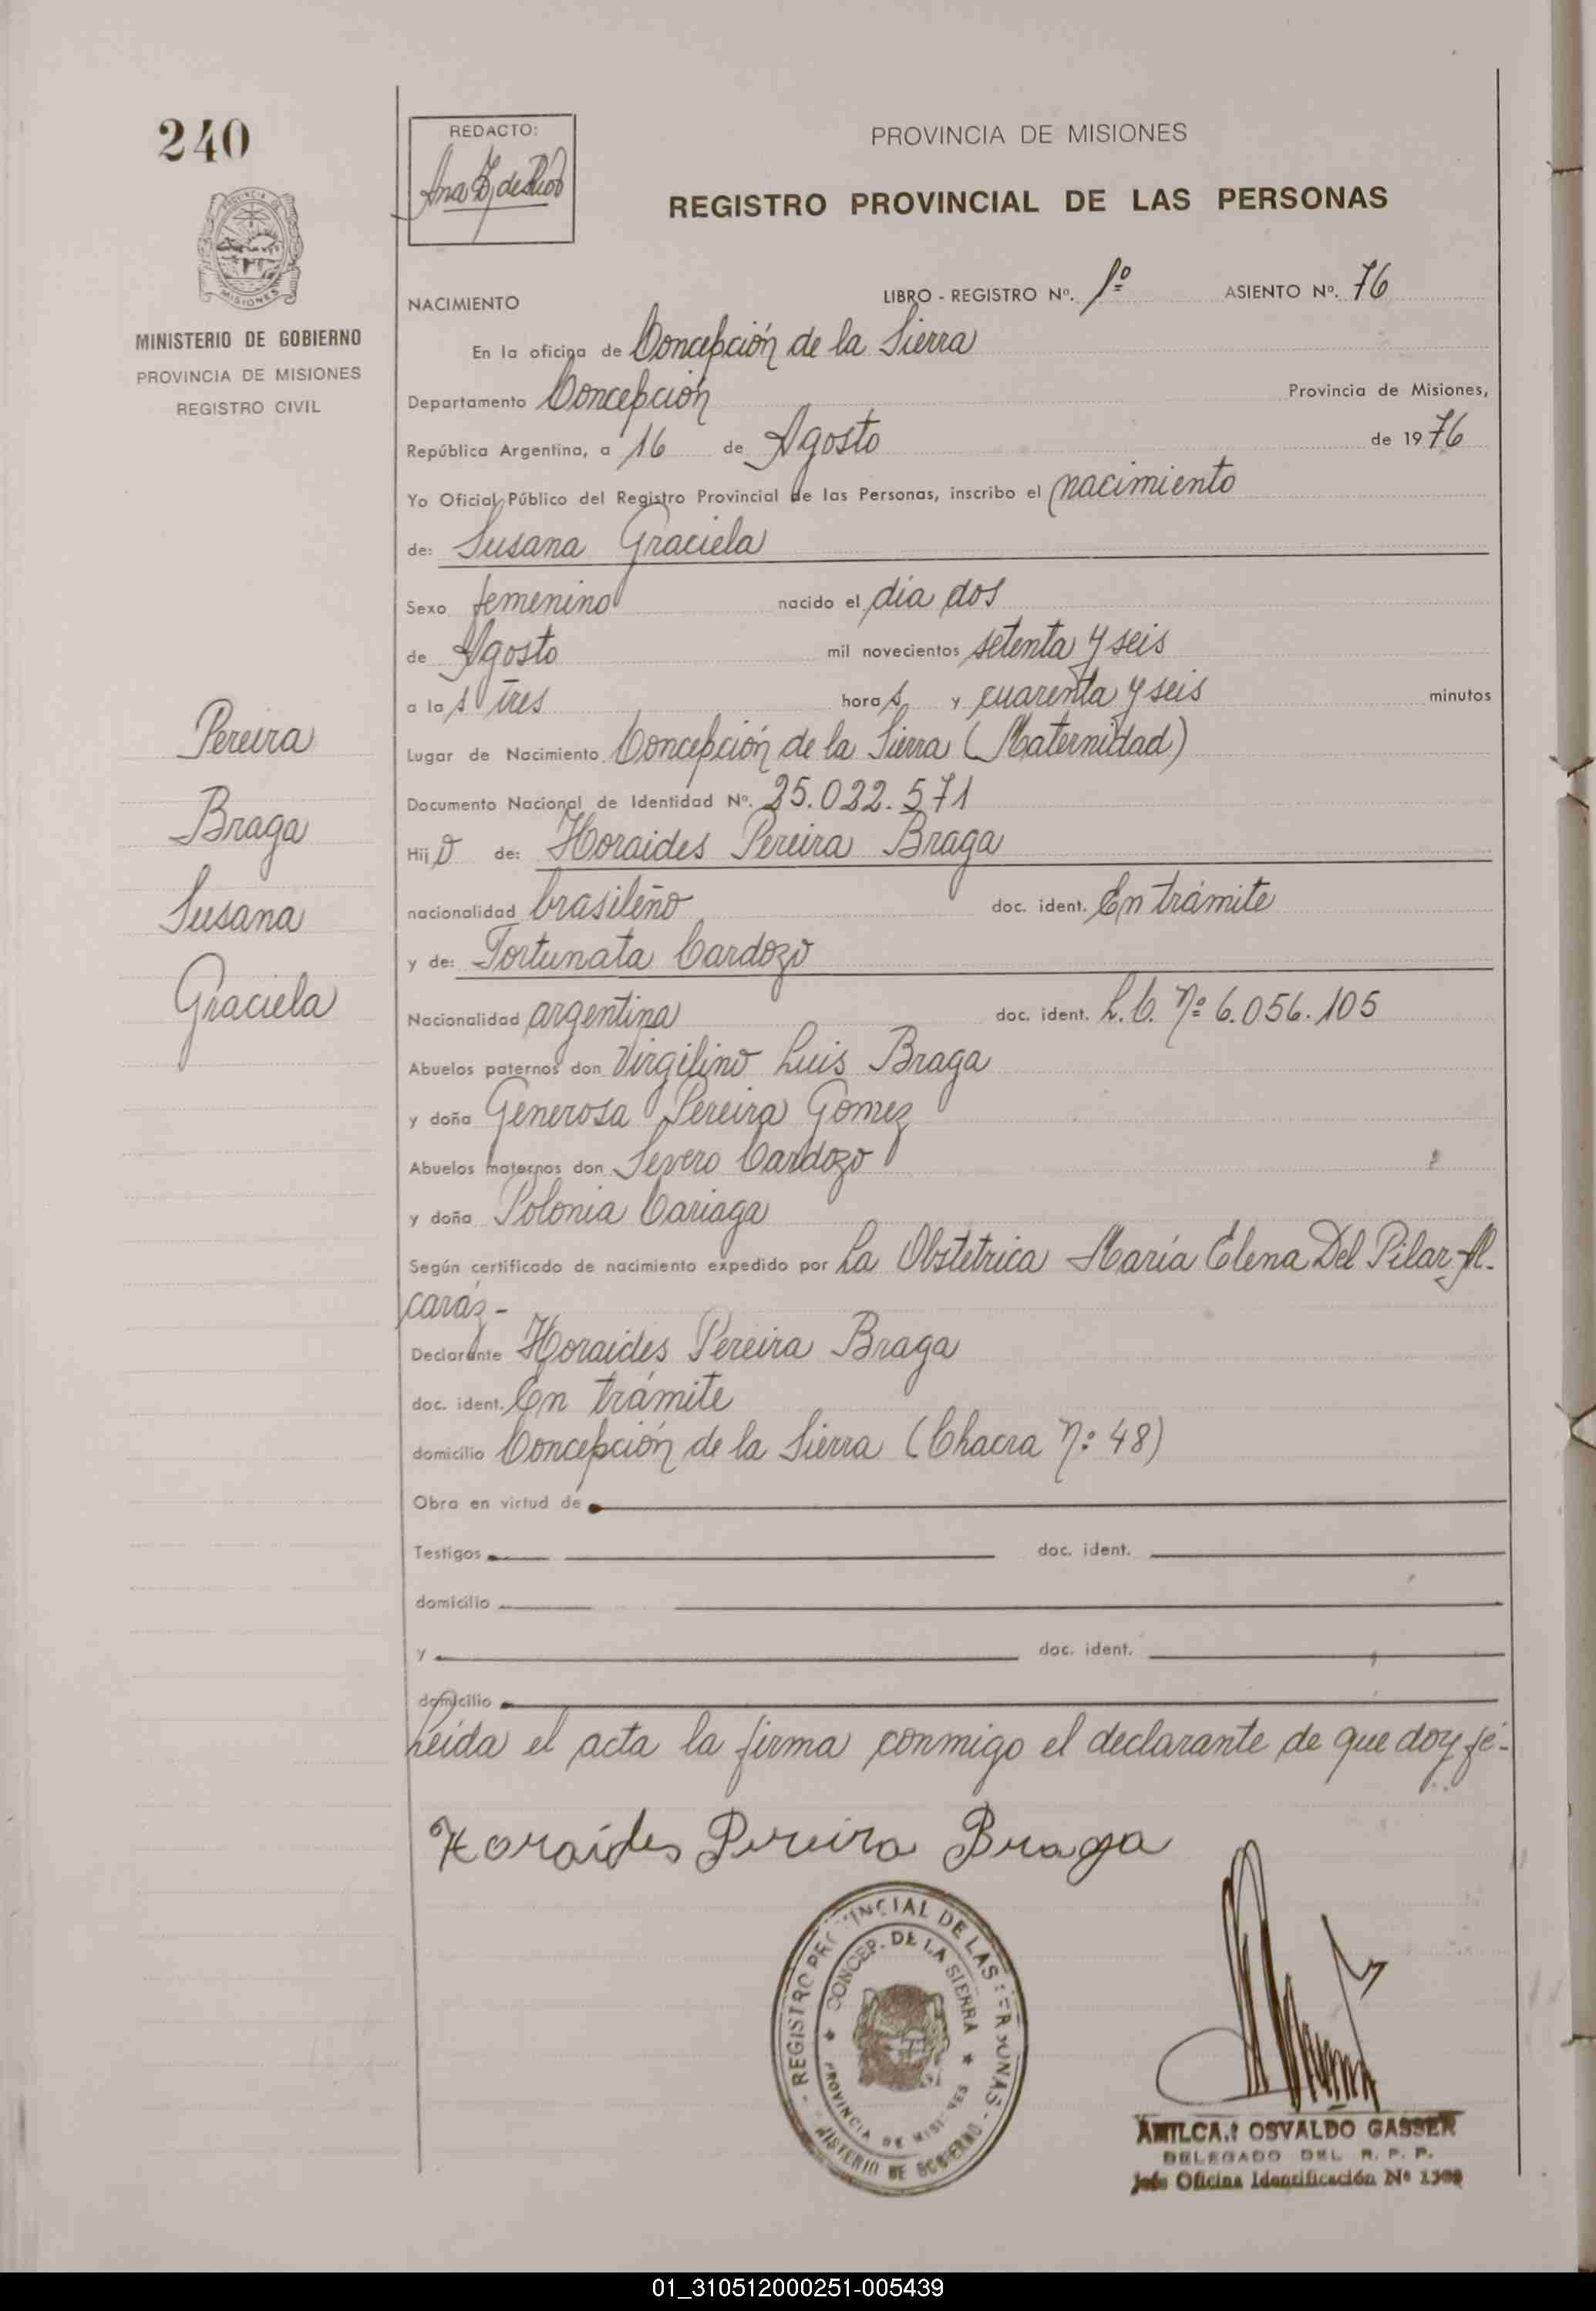 240
REDACTO:
PROVINCIA DE MISIONES
REGISTRO PROVINCIAL DE LAS PERSONAS
MISIONES
MINISTERIO DE GOBIERNO
PROVINCIA DE MISIONES
REGISTRO CIVIL
NACIMIENTO LIBRO - REGISTRO Nº. 1º ASIENTO Nº. 76
En la oficina de Concepción de la Sierra
Departamento Concepción Provincia de Misiones,
República Argentina, a 16 de Agosto de 1976
Yo Oficial Público del Registro Provincial de las Personas, inscribo el nacimiento
de: Susana Graciela
Sexo femenino nacido el día dos
de Agosto mil novecientos setenta y seis
a las tres horas y cuarenta y seis minutos
Lugar de Nacimiento Concepción de la Sierra (Maternidad)
Documento Nacional de Identidad Nº. 25.022.571
Hijo de: Horaides Pereira Braga
nacionalidad brasileño doc. ident. En trámite
y de: Fortunata Cardozo
Nacionalidad argentina doc. ident. L.C. Nº 6.056.105
Abuelos paternos don Virgilino Luis Braga
y doña Generosa Pereira Gomez
Abuelos maternos don Severo Cardozo
y doña Polonia Cariaga
Según certificado de nacimiento expedido por La Obstetrica María Elena Del Pilar Al-
caráz -
Declarante Horaides Pereira Braga
doc. ident. En trámite
domicilio Concepción de la Sierra (Chacra Nº 48)
Obra en virtud de
Testigos doc. ident.
domicilio
y doc. ident.
domicilio
Leída el acta la firma conmigo el declarante de que doy fé-
Pereira
Braga
Susana
Graciela
Horaides Pereira Braga
REGISTRO PROVINCIAL DE LAS PERSONAS
CONCEP. DE LA SIERRA
PROVINCIA DE MISIONES
MINISTERIO DE GOBIERNO
AMILCAR OSVALDO GASSER
DELEGADO DEL R. P. P.
Jefe Oficina Identificación Nº
01_310512000251-005439